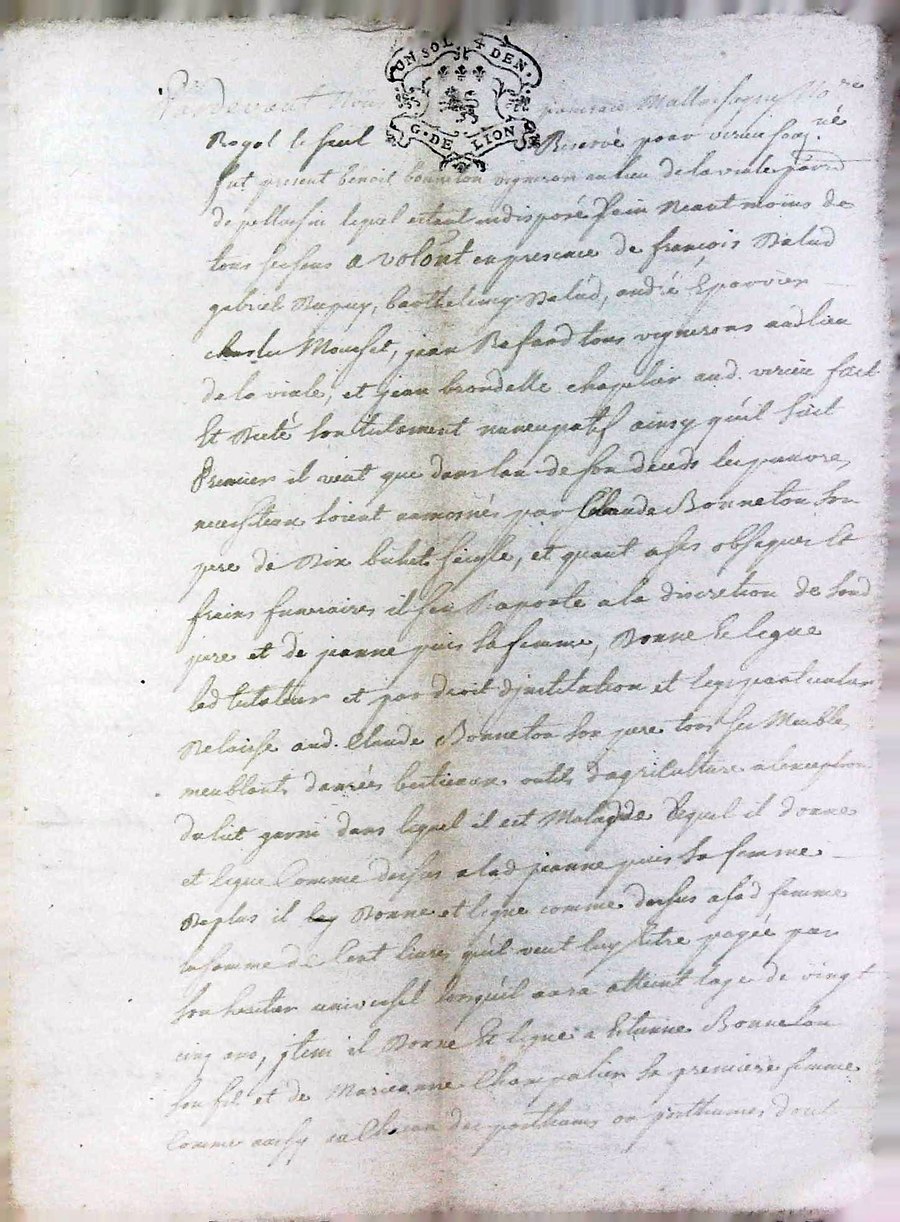 UN SOL 4 DEN.
G. DE LION
Pardevant Nous Mallassagny No.re
Royal le seul Reservé pour virieu sou.né
fut present benoit bonneton vigneron au lieu de la viale parr.
de pellussin lequel estant indisposé sain neant moins de
tous ses sens a volont en presence de françois Salud
gabriel Dupuy, barthelemy Salud, andré Eparvier
charles Mousset, jean Refard tous vignerons aud. lieu
de la viale, et jean brondelle chapelier aud. virieu fait
Et dicté son testament nuncupatif ainsy qu'il suit
Premier il veut que dans lan de son deceds les pauvres
necessiteux soient aumosnés par Claude Bonneton son
pere de Dix bichets seigle, et quant a ses obseques et
fraix funeraires il sen Raporte a la discretion de sond
pere et de jeanne puis sa femme, Donne et legue
led testateur et par droit d'institution et legs particulier
Delaisse aud. Claude Bonneton son pere tous ses Meubles
meublants danrées bestieaux outils d'agriculture a lexception
du lit garni dans lequel il est Malade lequel il donne
et legue comme dessus a lad jeanne puis sa femme
De plus il Donne et legue comme dessus a sad femme
la somme de Cent livres qu'il veut luy être payée par
son heritier universel lorsqu'il aura atteint lage de vingt
cinq ans, jtem il Donne et legue a Etienne Bonneton
son fils et de Marieanne Chapalier sa premiere femme
comme aussy a Chacun des posthumes ou posthumes dont